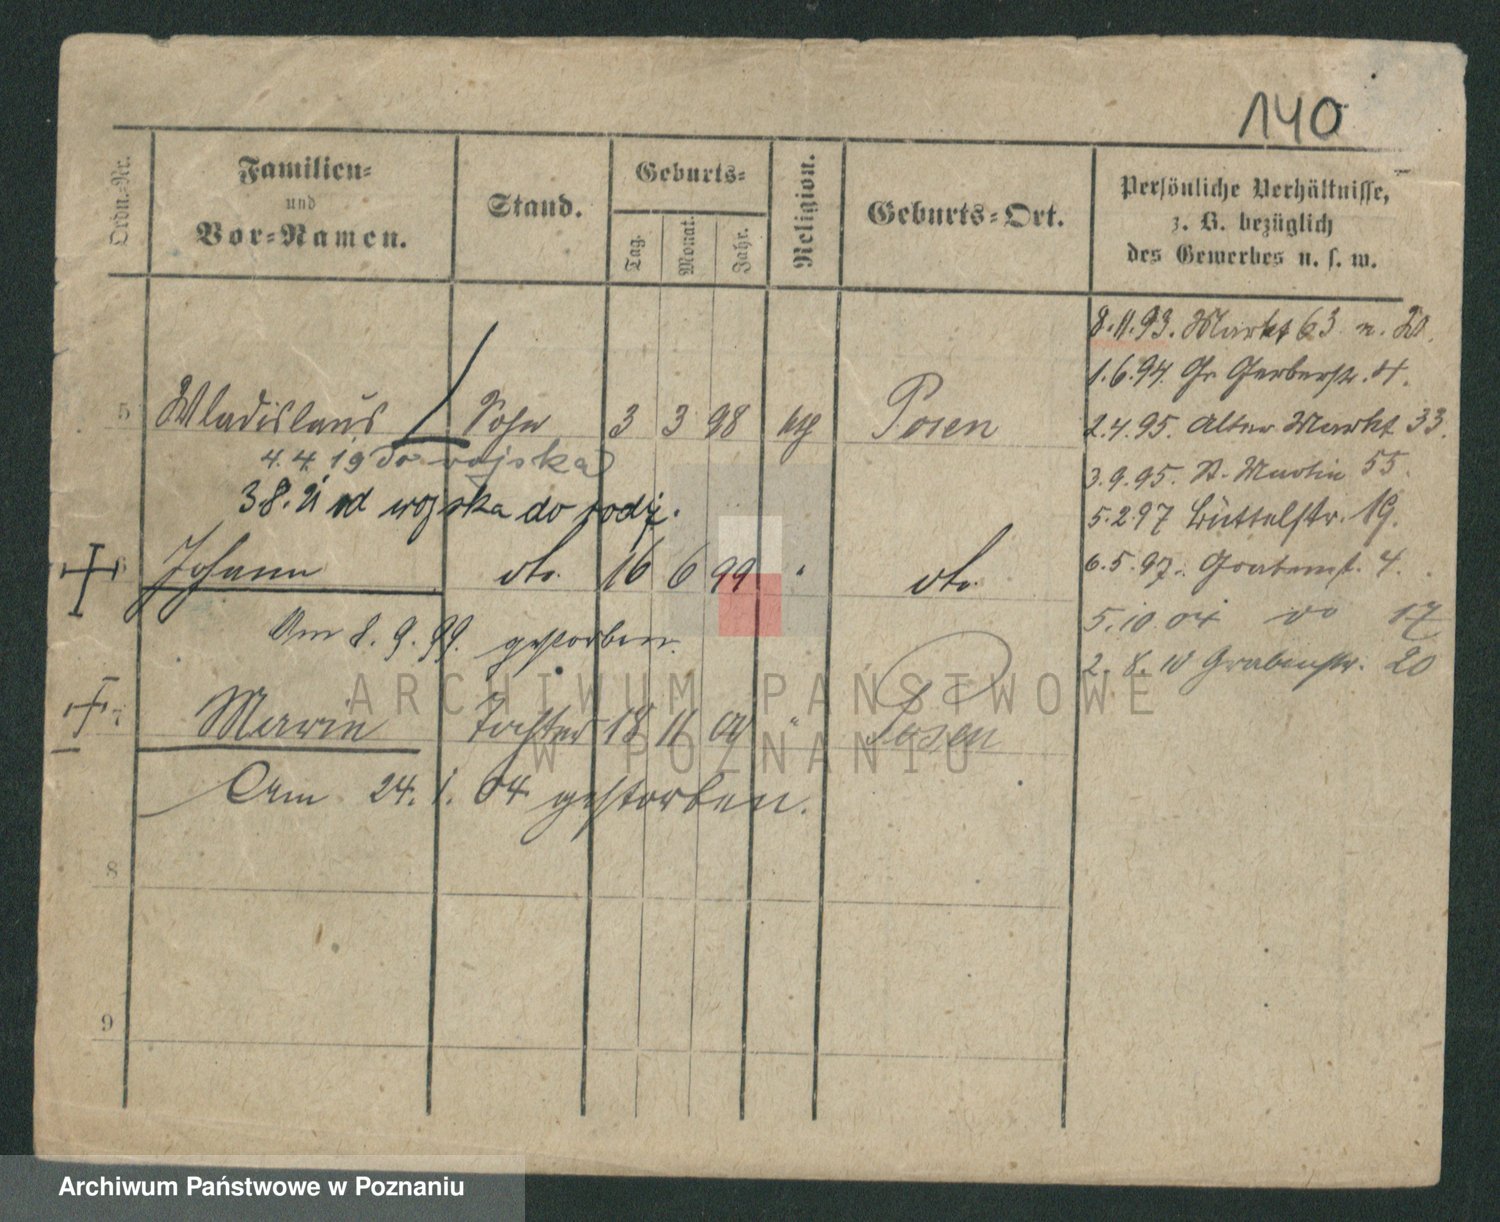 140
Ordn.-Nr.
Familien-
und
Vor-Namen.
Stand.
Geburts-
Tag.
Monat.
Jahr.
Religion.
Geburts-Ort.
Persönliche Verhältnisse,
z. B. bezüglich
des Gewerbes u. s. w.
8.11.93. Markt 63 n. 20.
1.6.94. Gr Gerberstr. 4.
2.4.95. Alter Markt 33.
3.9.95. St. Martin 55.
5.2.97 Büttelstr. 19.
6.5.97. Grabenst. 4.
5.10.04 do 17
2.8.10 Grabenstr. 20
5 Wladislaus Sohn 3 3 98 kth Posen
4.4.19 do wojska
3.8.21 od wojska do rodz.
6 Johann do. 16 6 99 " do.
Am 8.9.99. gestorben.
7 Marie Tochter 18 11 00 " Posen
Am 24.1.04 gestorben.
8
9
ARCHIWUM PAŃSTWOWE
W POZNANIU
Archiwum Państwowe w Poznaniu